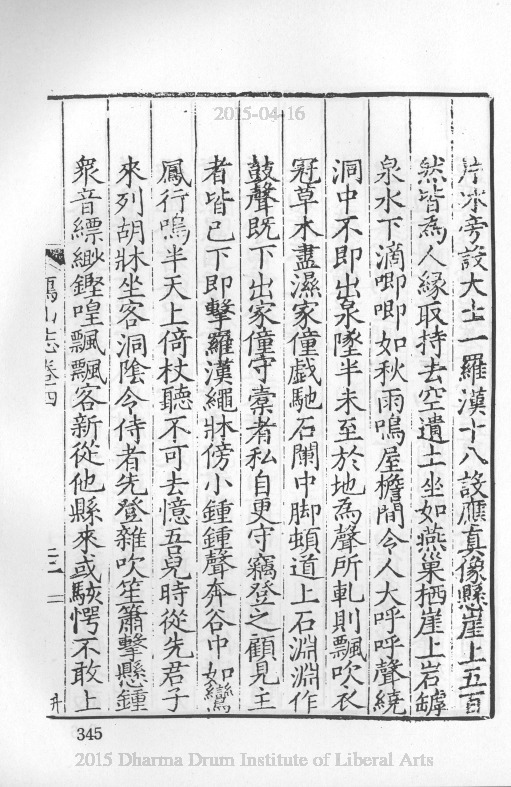 2015-04-16
片冰旁設大士一羅漢十八設應真像懸崖上五百
然皆為人緣取持去空遺土坐如燕巢栖崖上岩罅
泉水下滴唧唧如秋雨鳴屋檐間令人大呼呼聲繞
洞中不即出泉墜半未至於地為聲所軋則飄吹衣
冠草木盡濕家僮戲馳石闌中脚頓道上石淵淵作
鼓聲既下出家僮守橐者私自更守竊登之顧見主
者皆已下即擊羅漢繩牀傍小鍾鍾聲奔谷中如鸞
鳳行鳴半天上倚杖聽不可去憶吾兒時從先君子
來列胡牀坐客洞陰令侍者先登雜吹笙簫擊懸鍾
衆音縹緲鏗喤飄飄客新從他縣來或駭愕不敢上
山志卷四
二
345
2015 Dharma Drum Institute of Liberal Arts